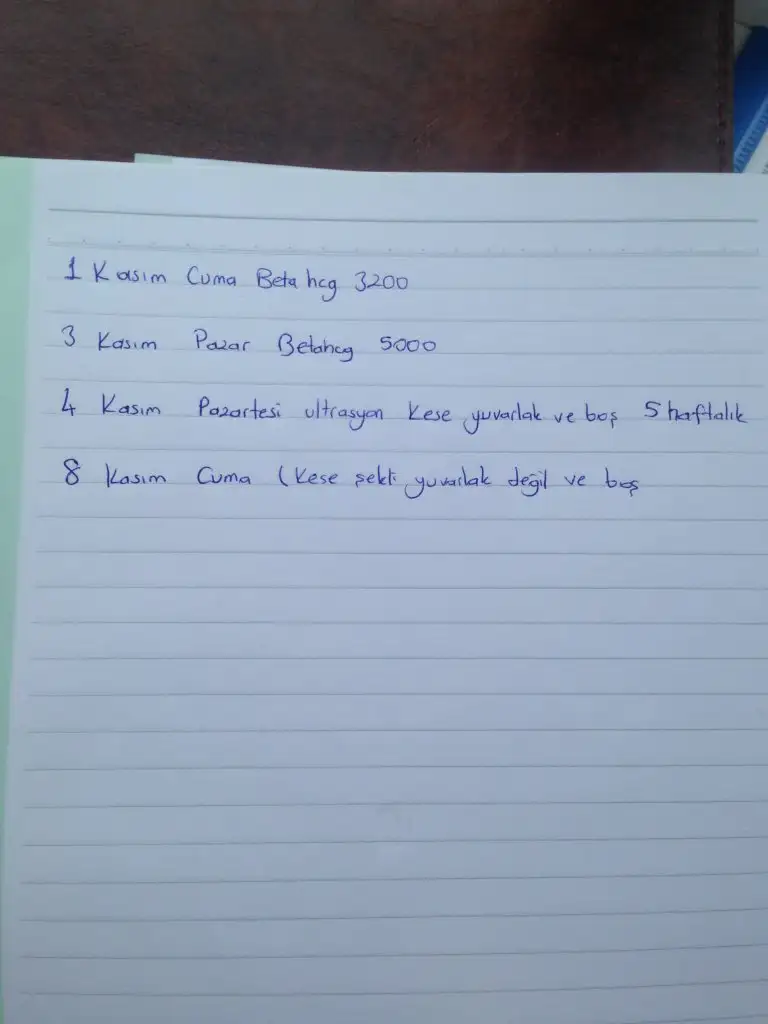 1 Kasım Cuma Beta hcg 3200
3 Kasım Pazar Betahcg 5000
4 Kasım Pazartesi ultrasyon Kese yuvarlak ve boş 5 haftalık
8 Kasım Cuma (Kese şekli yuvarlak değil ve boş